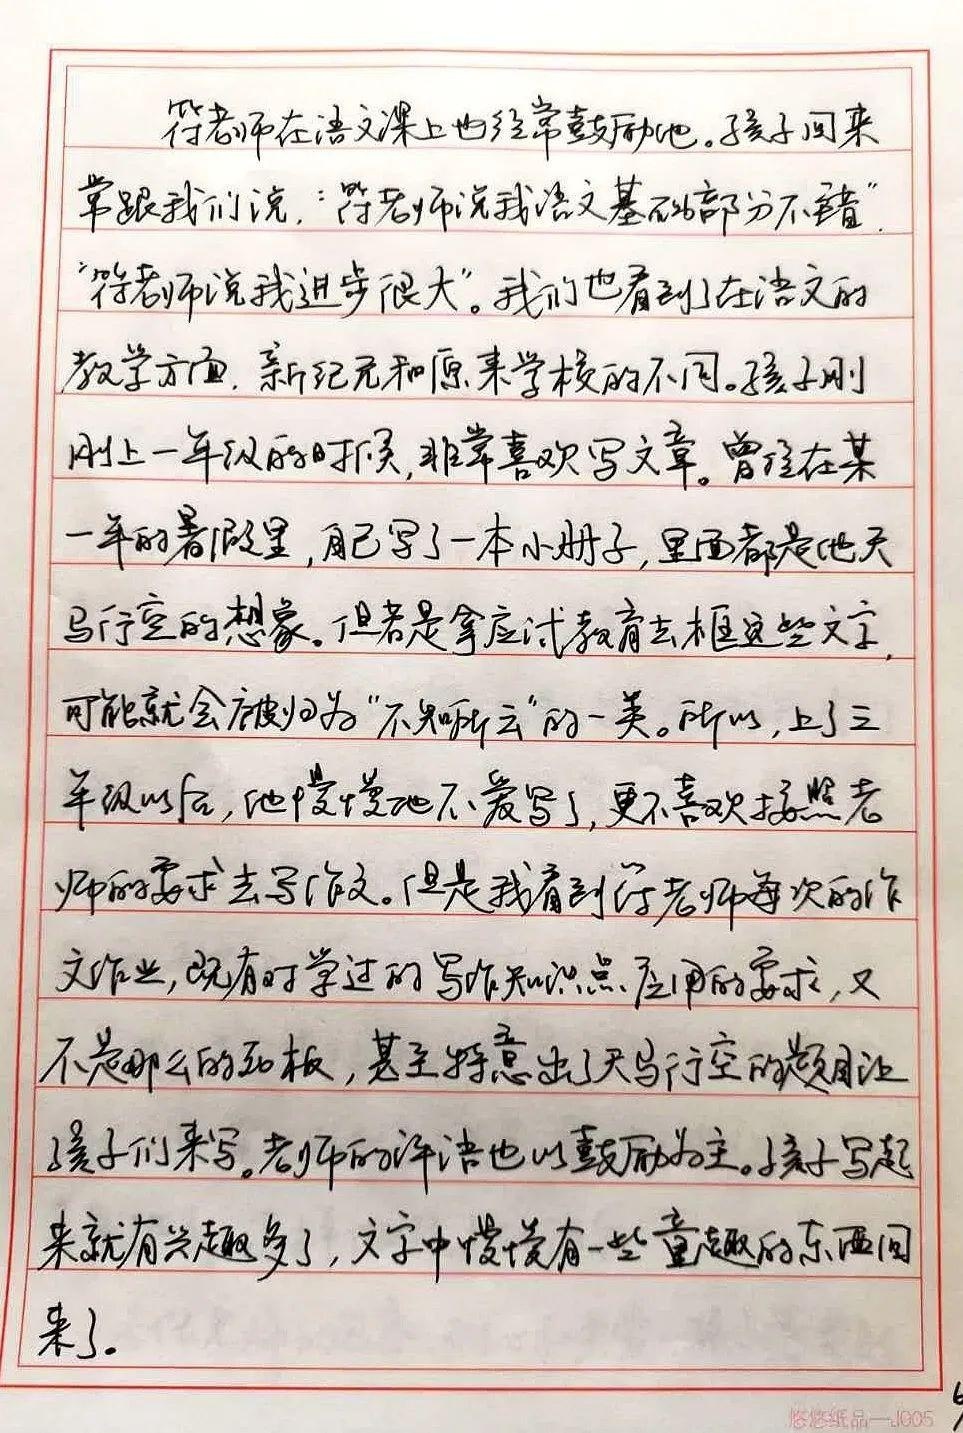 符老师在语文课上也经常鼓励他。孩子回来
常跟我们说，“符老师说我语文基础部分不错”，
“符老师说我进步很大”。我们也看到了在语文的
教学方面，新纪元和原来学校的不同。孩子刚
刚上一年级的时候，非常喜欢写文章。曾经在某
一年的暑假里，自己写了一本小册子，里面都是他天
马行空的想象。但若是拿应试教育去框这些文字，
可能就会被归为“不知所云”的一类。所以，上了三
年级以后，他慢慢地不爱写了，更不喜欢按照老
师的要求去写作文。但是我看到符老师每次的作
文作业，既有对学过的写作知识点应用的要求，又
不是那么的死板，甚至特意出了天马行空的题目让
孩子们来写。老师的评语也以鼓励为主。孩子写起
来就有兴趣多了，文字中慢慢有一些童趣的东西回
来了。
悠悠纸品—J005